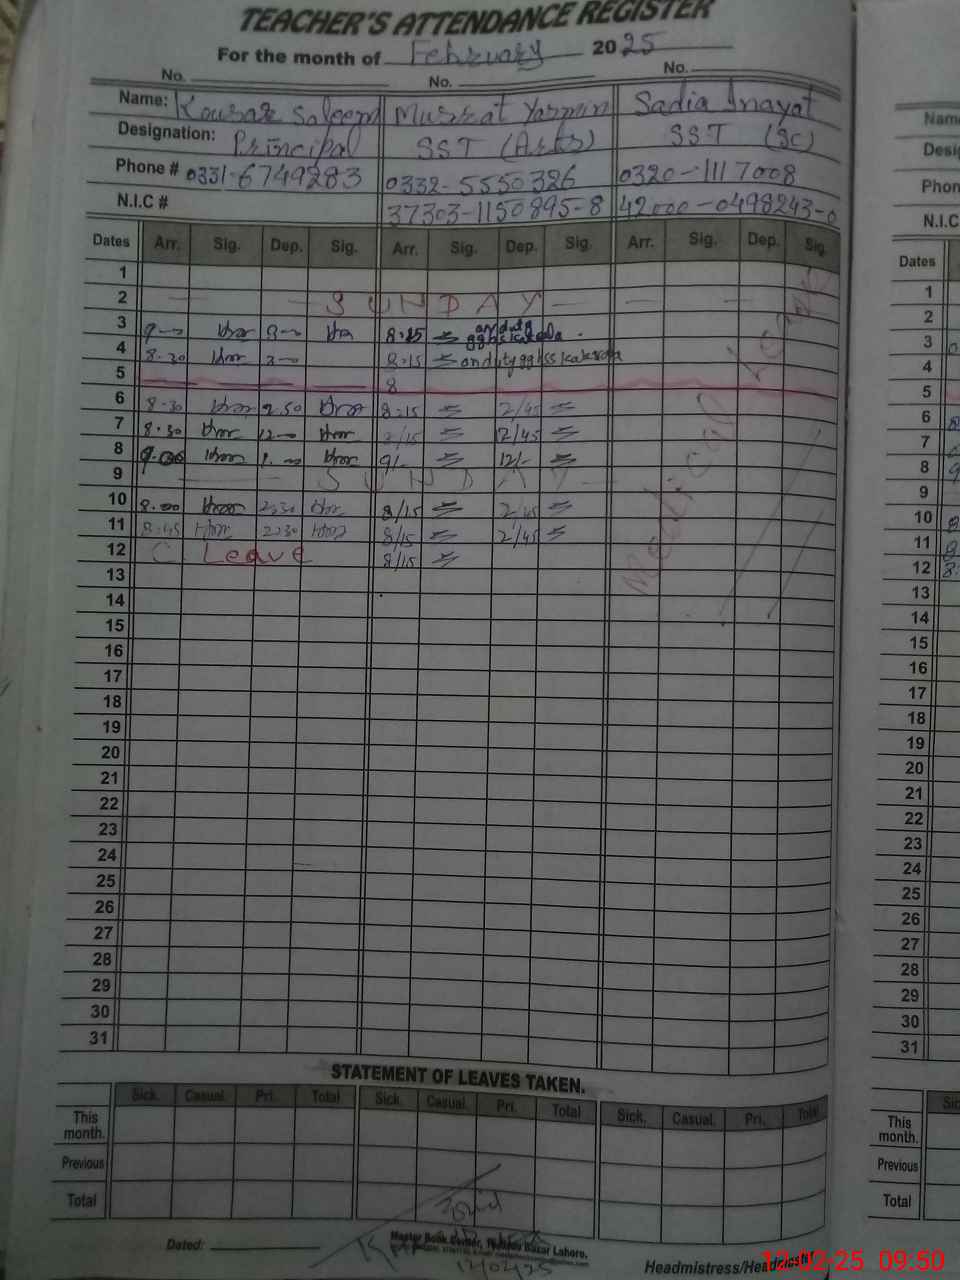 TEACHER'S ATTENDANCE REGISTER
For the month of February 2025
No. No. No.
Name: Kousar Saleem Mussrat Yasmin Sadia Inayat
Designation: Principal SST (Arts) SST (Sc)
Phone # 0331-6749283 0332-5550326 0320-1117008
N.I.C # 37303-1150895-8 42000-0498243-0
Dates Arr. Sig. Dep. Sig. Arr. Sig. Dep. Sig. Arr. Sig. Dep. Sig.
1
2 SUNDAY
3 9-00 3-00 8.15 on duty
4 8.30 3-00 8.15 on duty gghss
5 8
6 8.30 2.50 8:15 2/45
7 8.30 12-00 2/15 2/45
8 9.00 1.00 9/- 12/-
9 SUNDAY
10 8.00 2.30 8/15 2/45
11 8:45 2:30 8/15 2/45
12 C Leave 8/15
Medical Leave
13
14
15
16
17
18
19
20
21
22
23
24
25
26
27
28
29
30
31
STATEMENT OF LEAVES TAKEN.
Sick. Casual. Pri. Total Sick. Casual. Pri. Total Sick. Casual. Pri. Total
This month.
Previous
Total
Dated:
Master Book Center, Bazar Lahore.
12/02/25
Headmistress/Headmaster
Name
Desig
Phon
N.I.C
Dates
1
2
3
4
5
6
7
8
9
10
11
12
13
14
15
16
17
18
19
20
21
22
23
24
25
26
27
28
29
30
31
Sic
This month.
Previous
Total
12-02-25 09:50